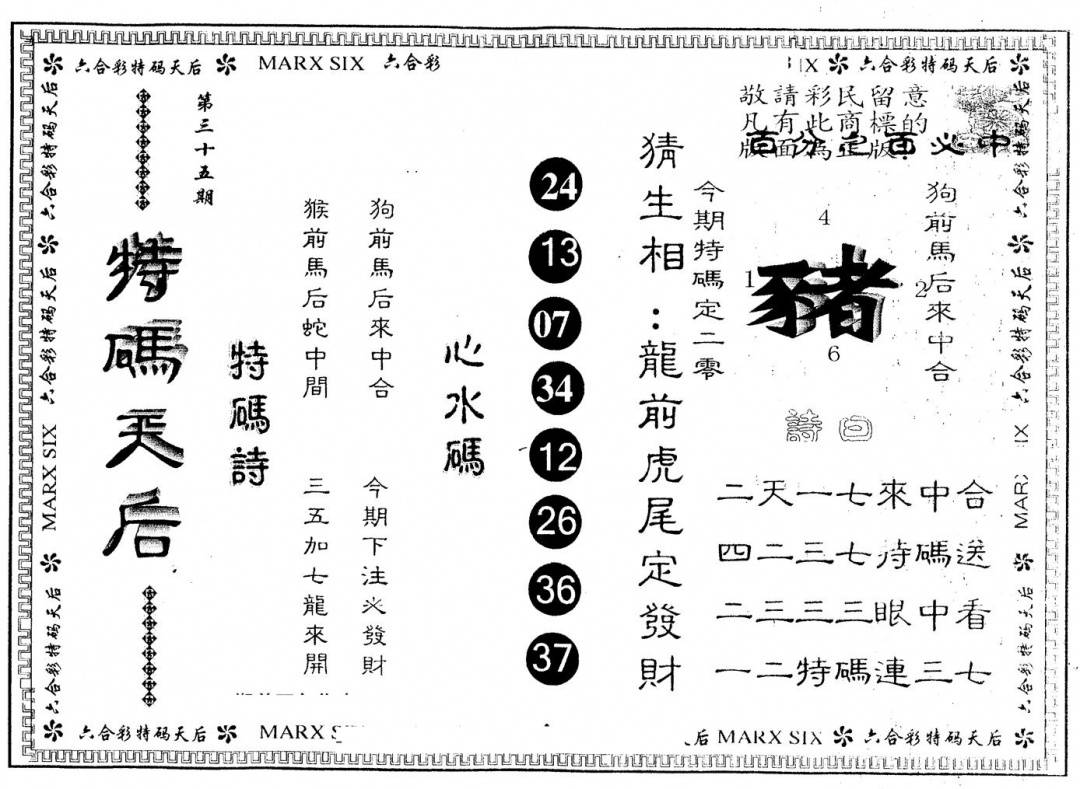 六合彩特码天后 MARX SIX 六合彩
IX 六合彩特码天后
六合彩特码天后
六合彩特码天后
MARX SIX
六合彩特码天后
第三十五期
特碼天后
特碼詩
猴前馬后蛇中間
三五加七龍來開
狗前馬后來中合
今期下注必發財
心水碼
24
13
07
34
12
26
36
37
猜生相：龍前虎尾定發財
今期特碼定二零
敬請彩民留意
凡有此商標的
版面為正版
百分之百必中
4
1
豬
2
6
狗前馬后來中合
詩曰
二天一七來中合
四二三七待碼送
二三三三眼中看
一二特碼連三七
六合彩特码天后
六合彩特码天后
IX
MARX
六合彩特码天后
六合彩特码天后 MARX S
后 MARX SIX 六合彩特码天后